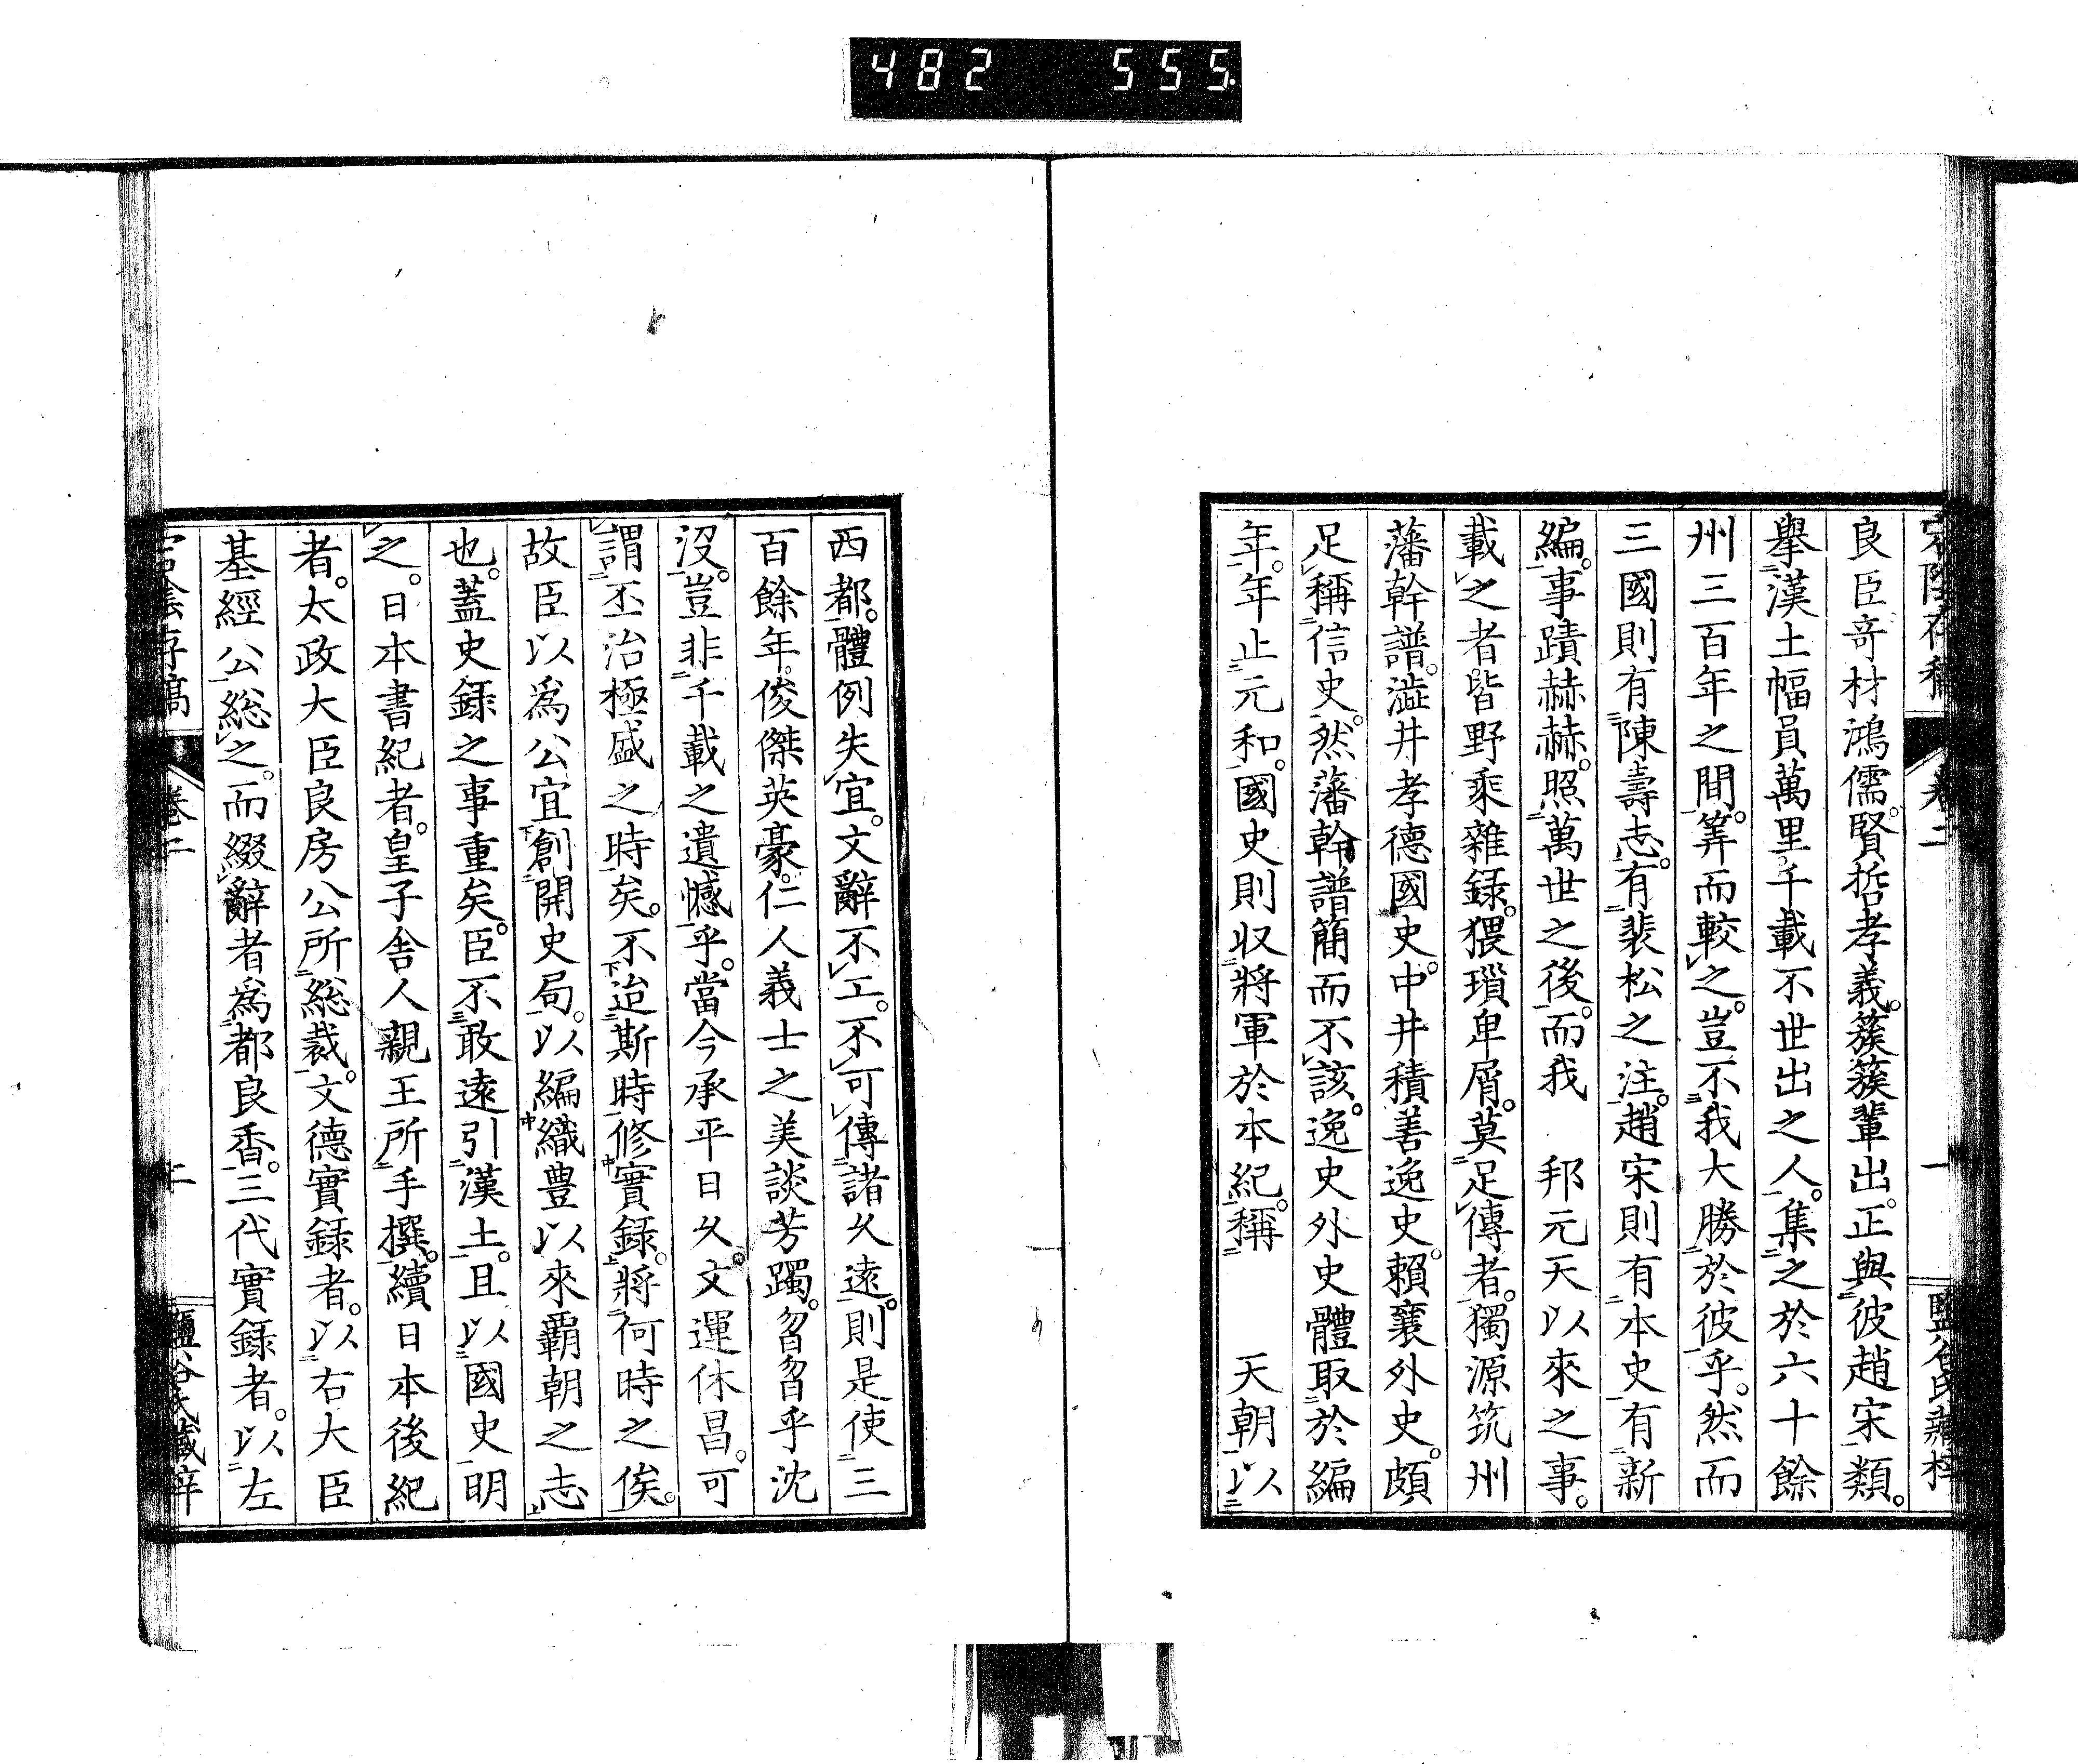 482 555
良臣奇材鴻儒。賢哲孝義。簇簇輩出。正與彼趙宋類。
擧漢土幅員萬里千載不世出之人。集之於六十餘
州三百年之間。筭而較之。豈不我大勝於彼乎。然而
三國則有陳壽志。有裴松之注。趙宋則有本史有新
編。事蹟赫赫。照萬世之後。而我 邦元天以來之事。
載之者皆野乘雜録。猥瑣卑屑。莫足傳者。獨源筑州
藩幹譜。澁井孝德國史。中井積善逸史。賴襄外史。頗
足稱信史。然藩幹譜簡而不該。逸史外史體取於編
年。年止元和。國史則収將軍於本紀。稱 天朝以
西都。體例失宜。文辭不工。不可傳諸久遠。則是使三
百餘年。俊傑英豪。仁人義士之美談芳躅。曶曶乎沈
沒。豈非千載之遺憾乎。當今承平日久。文運休昌。可
謂丕治極盛之時矣。不迨斯時修實録。將何時之俟。
故臣以爲公宜創開史局。以編織豊以來覇朝之志
也。蓋史録之事重矣。臣不敢遠引漢土。且以國史明
之。日本書紀者。皇子舍人親王所手撰。續日本後紀
者。太政大臣良房公所総裁。文德實録者。以右大臣
基經公総之。而綴辭者爲都良香。三代實録者。以左
宕陰存稿 卷二 二 鹽谷氏藏梓